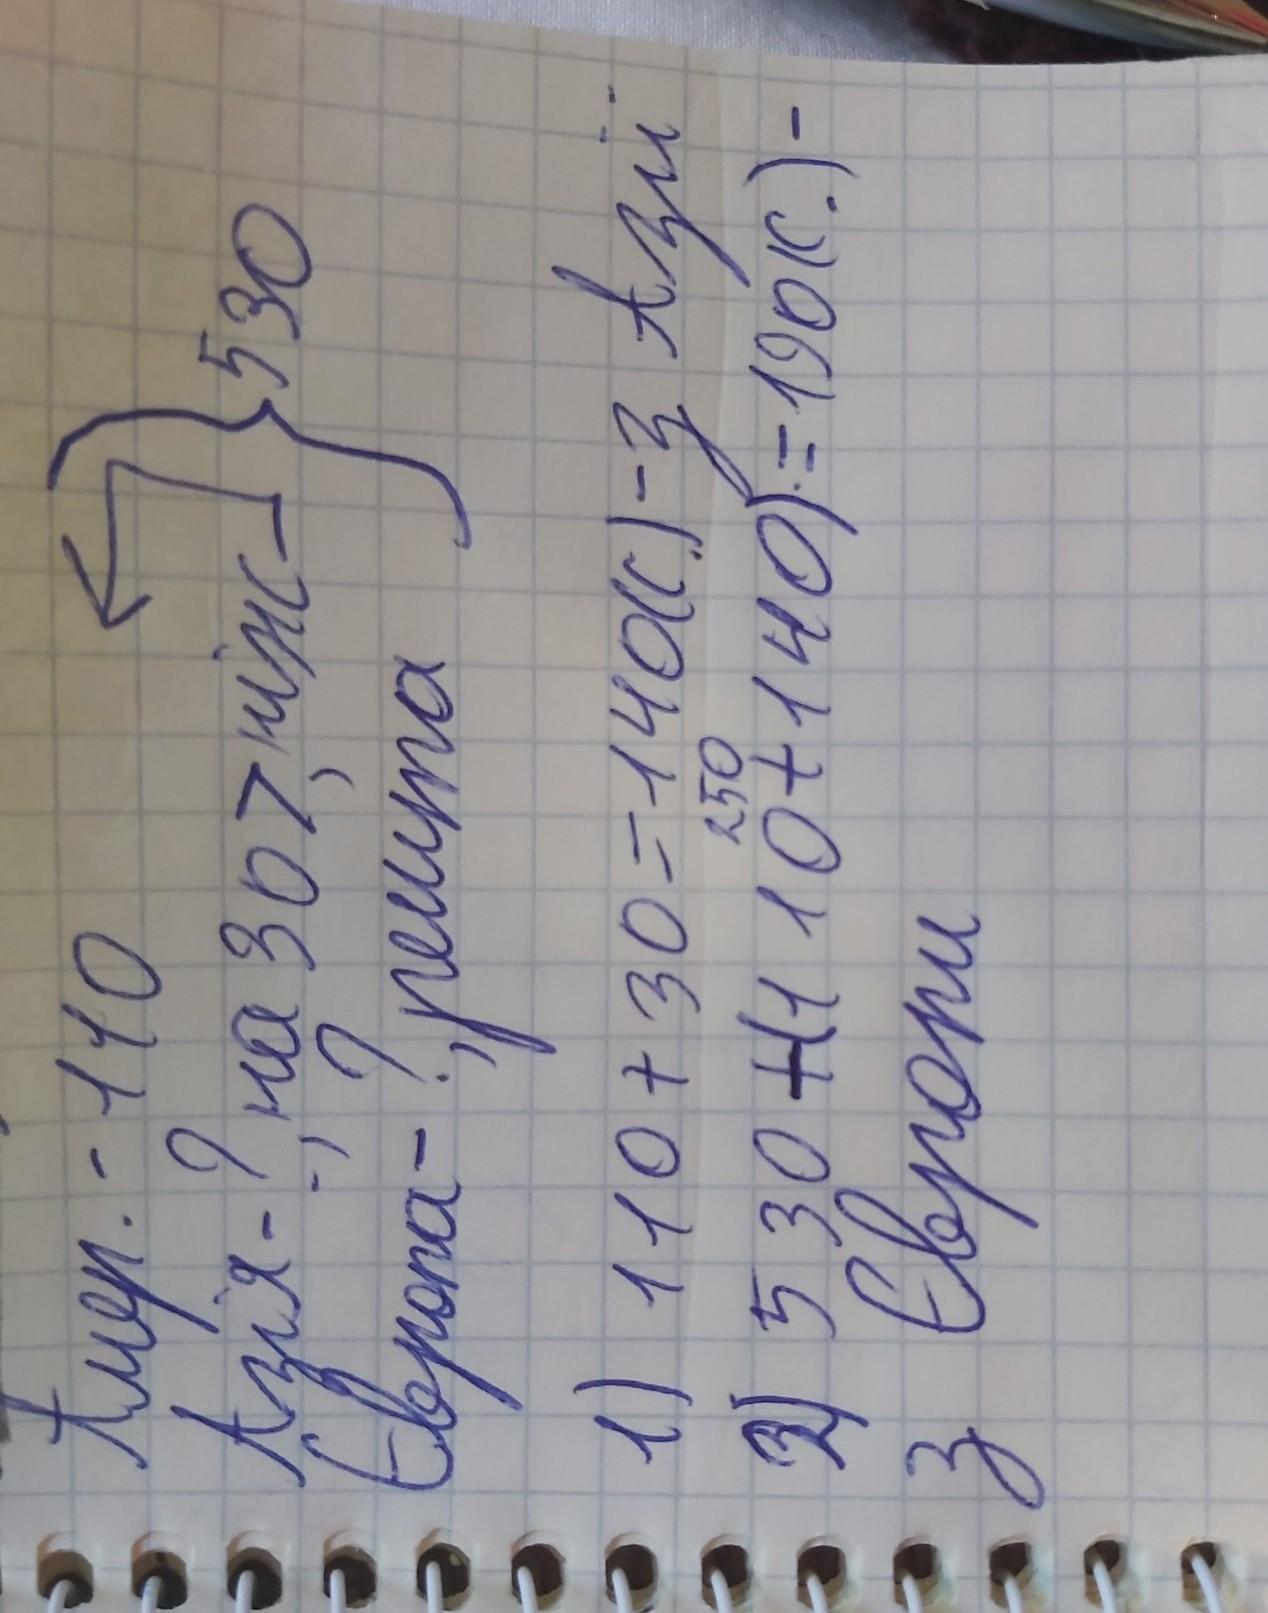 Амер. - 110
Азія - ?, на 30 >, ніж
530
Європа - ?, решта
1) 110 + 30 = 140 (к.) - з Азії
250
2) 530 - (110 + 140) = 190 (к.) -
з Європи